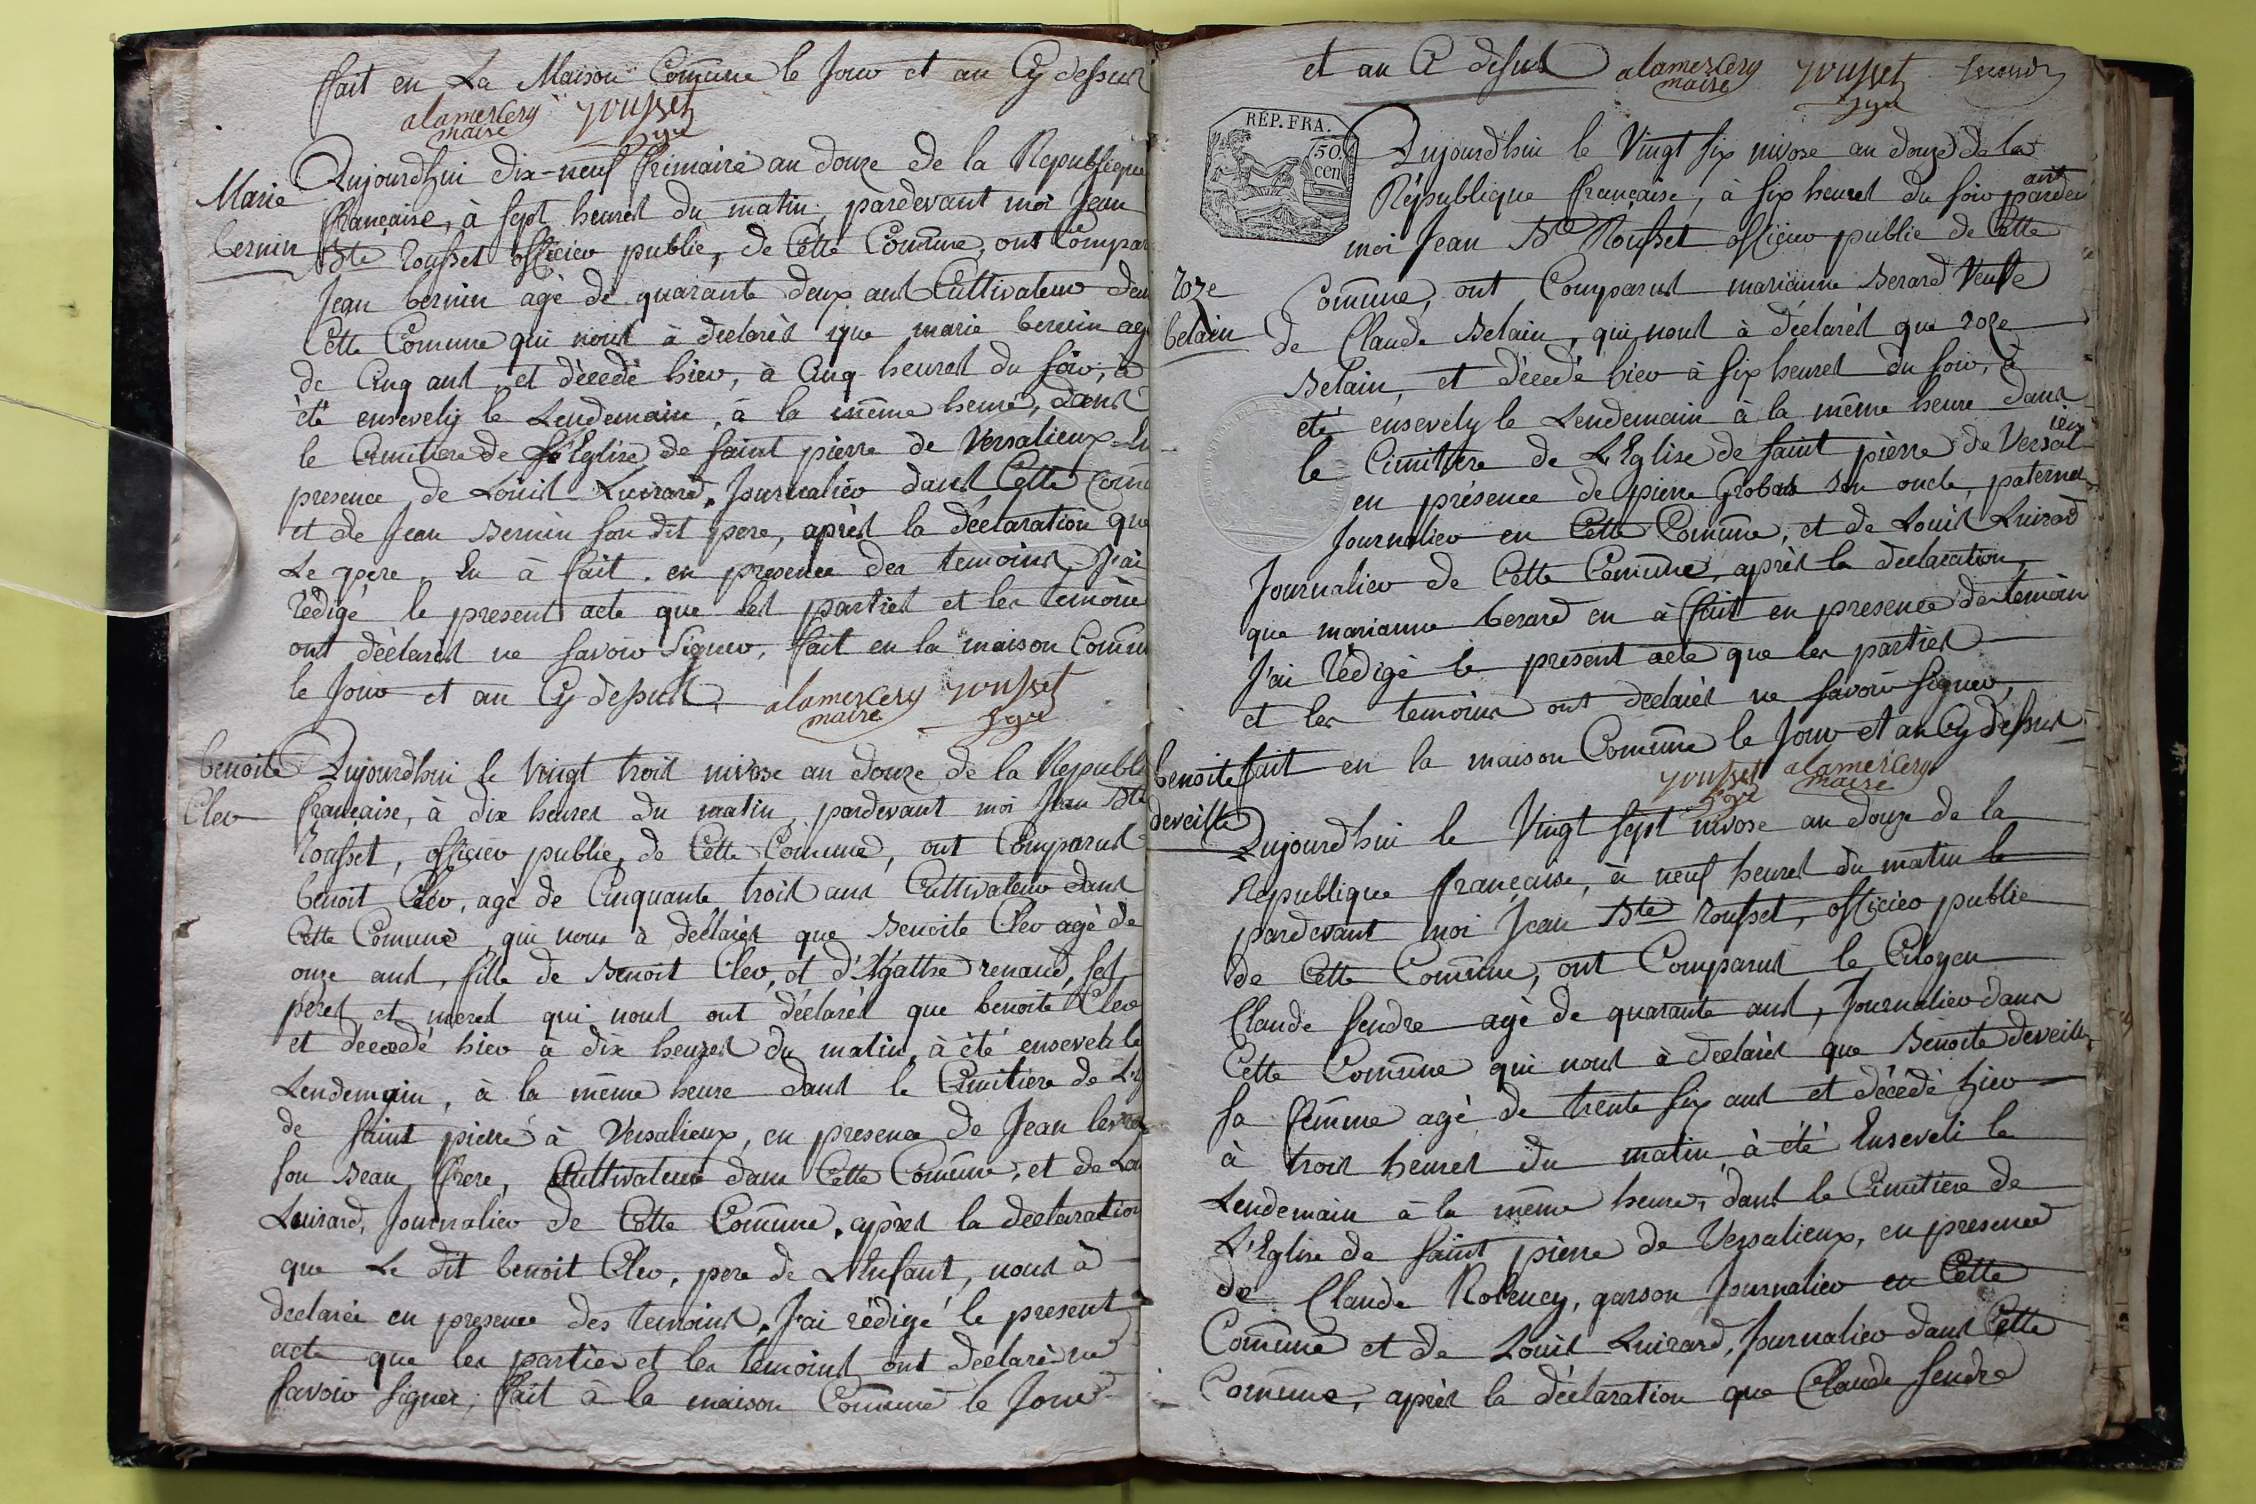 fait en La Maison Comūne le Jour et an Cy dessus
alamercery rousset
maire
Marie
bernin
Aujourdhui dix-neuf frimaire an douze de la Republique
française, à sept heures du matin, pardevant moi Jean
Bte rousset officier public, de Cette Comūne, ont Compar
Jean bernin agé de quarante deux ans Cultivateur dan
Cette Comune qui nous à declarés que marie bernin ag
de Cinq ans, et décedé hier, à Cinq heures du soir, à
été ensevely le Lendemain, à la même heure, dans
le Cimitiere de l'Eglise de saint pierre de Versalieux En
presence, de Louis Luirard, Journalier dans Cette Comū
et de Jean Bernin son dit pere, après la déclaration que
Le père, En à fait, en presence des temoins, J'ai
rédigé le present acte que les parties et les temoins
ont déclarés ne savoir Signer, fait en la maison Comūn
le Jour et an Cy dessus alamercery rousset
maire
benoite
Cler
Aujourdhui le Vingt trois nivose an douze de la Republ
française, à dix heures du matin, pardevant moi Jean Bte
Rousset, officier public, de Cette Comune, ont Comparus
benoit Cler, agé de Cinquante trois ans Cultivateur dans
Cette Comune, qui nous à déclarés que Benoite Cler agé de
onze ans, fille de Benoit Cler, et d'Agathe renaud, ses
peres et meres qui nous ont déclarés que benoite Cler
et décedé hier à dix heures du matin, à été enseveli le
Lendemain, à la même heure dans le Cimitiere de L'
de saint pierre à Versalieux, en presence de Jean
son Beau frere, Cultivateur dans Cette Comūne, et de Lou
Luirard, Journalier de Cette Comūne, après la declaration
que Le dit benoit Cler, pere de L'Enfant, nous à
declarée en presence des temoins, J'ai rédigé le present
acte que les parties et les temoins ont declarés ne
savoir signer, fait à la maison Comūne le Jour
et an Ci dessus alamercery rousset
maire
RÉP. FRA.
50
cen
Aujourdhui le Vingt six nivose an douze de la
République française, à six heures du soir pardev
ant
moi Jean Bte Rousset officier public de Cette
roze
belain
Comūne, ont Comparus marianne Berard Veuve
de Claude Belain, qui nous à déclarés que roze
Belain, et décedé hier à six heures du soir, à
été ensevely le Lendemain à la même heure dans
le Cimitiere de L'Eglise de saint pierre de Versal
ieux
en présence de pierre Grobas son oncle, paternel
Journalier en Cette Comūne, et de Louis Luirard
Journalier de Cette Comūne, après la declaration,
que marianne berard en à fait en presence de temoin
J'ai rédigé le present acte que les parties
et les temoins ont declarés ne savoir signer,
fait en la maison Comūne le Jour et an Cy dessus
rousset alamercery
maire
benoite
deveille
Aujourdhui le Vingt sept nivose an douze de la
Republique française, à neuf heures du matin le
pardevant moi Jean Bte rousset, officier public
de Cette Comūne, ont Comparus le Citoyen
Claude fendre agé de quarante ans, Journalier dans
Cette Comūne qui nous à declarés que Benoite deveille
sa femme agé de trente six ans et décédé hier
à trois heures du matin à été Enseveli le
Lendemain à la même heure, dans le Cimitiere de
L'Eglise de saint pierre de Versalieux, en presence
de Claude Robency, garson Journalier en Cette
Comūne et de Louis Luirard, Journalier dans Cette
Comune, après la déclaration que Claude fendre